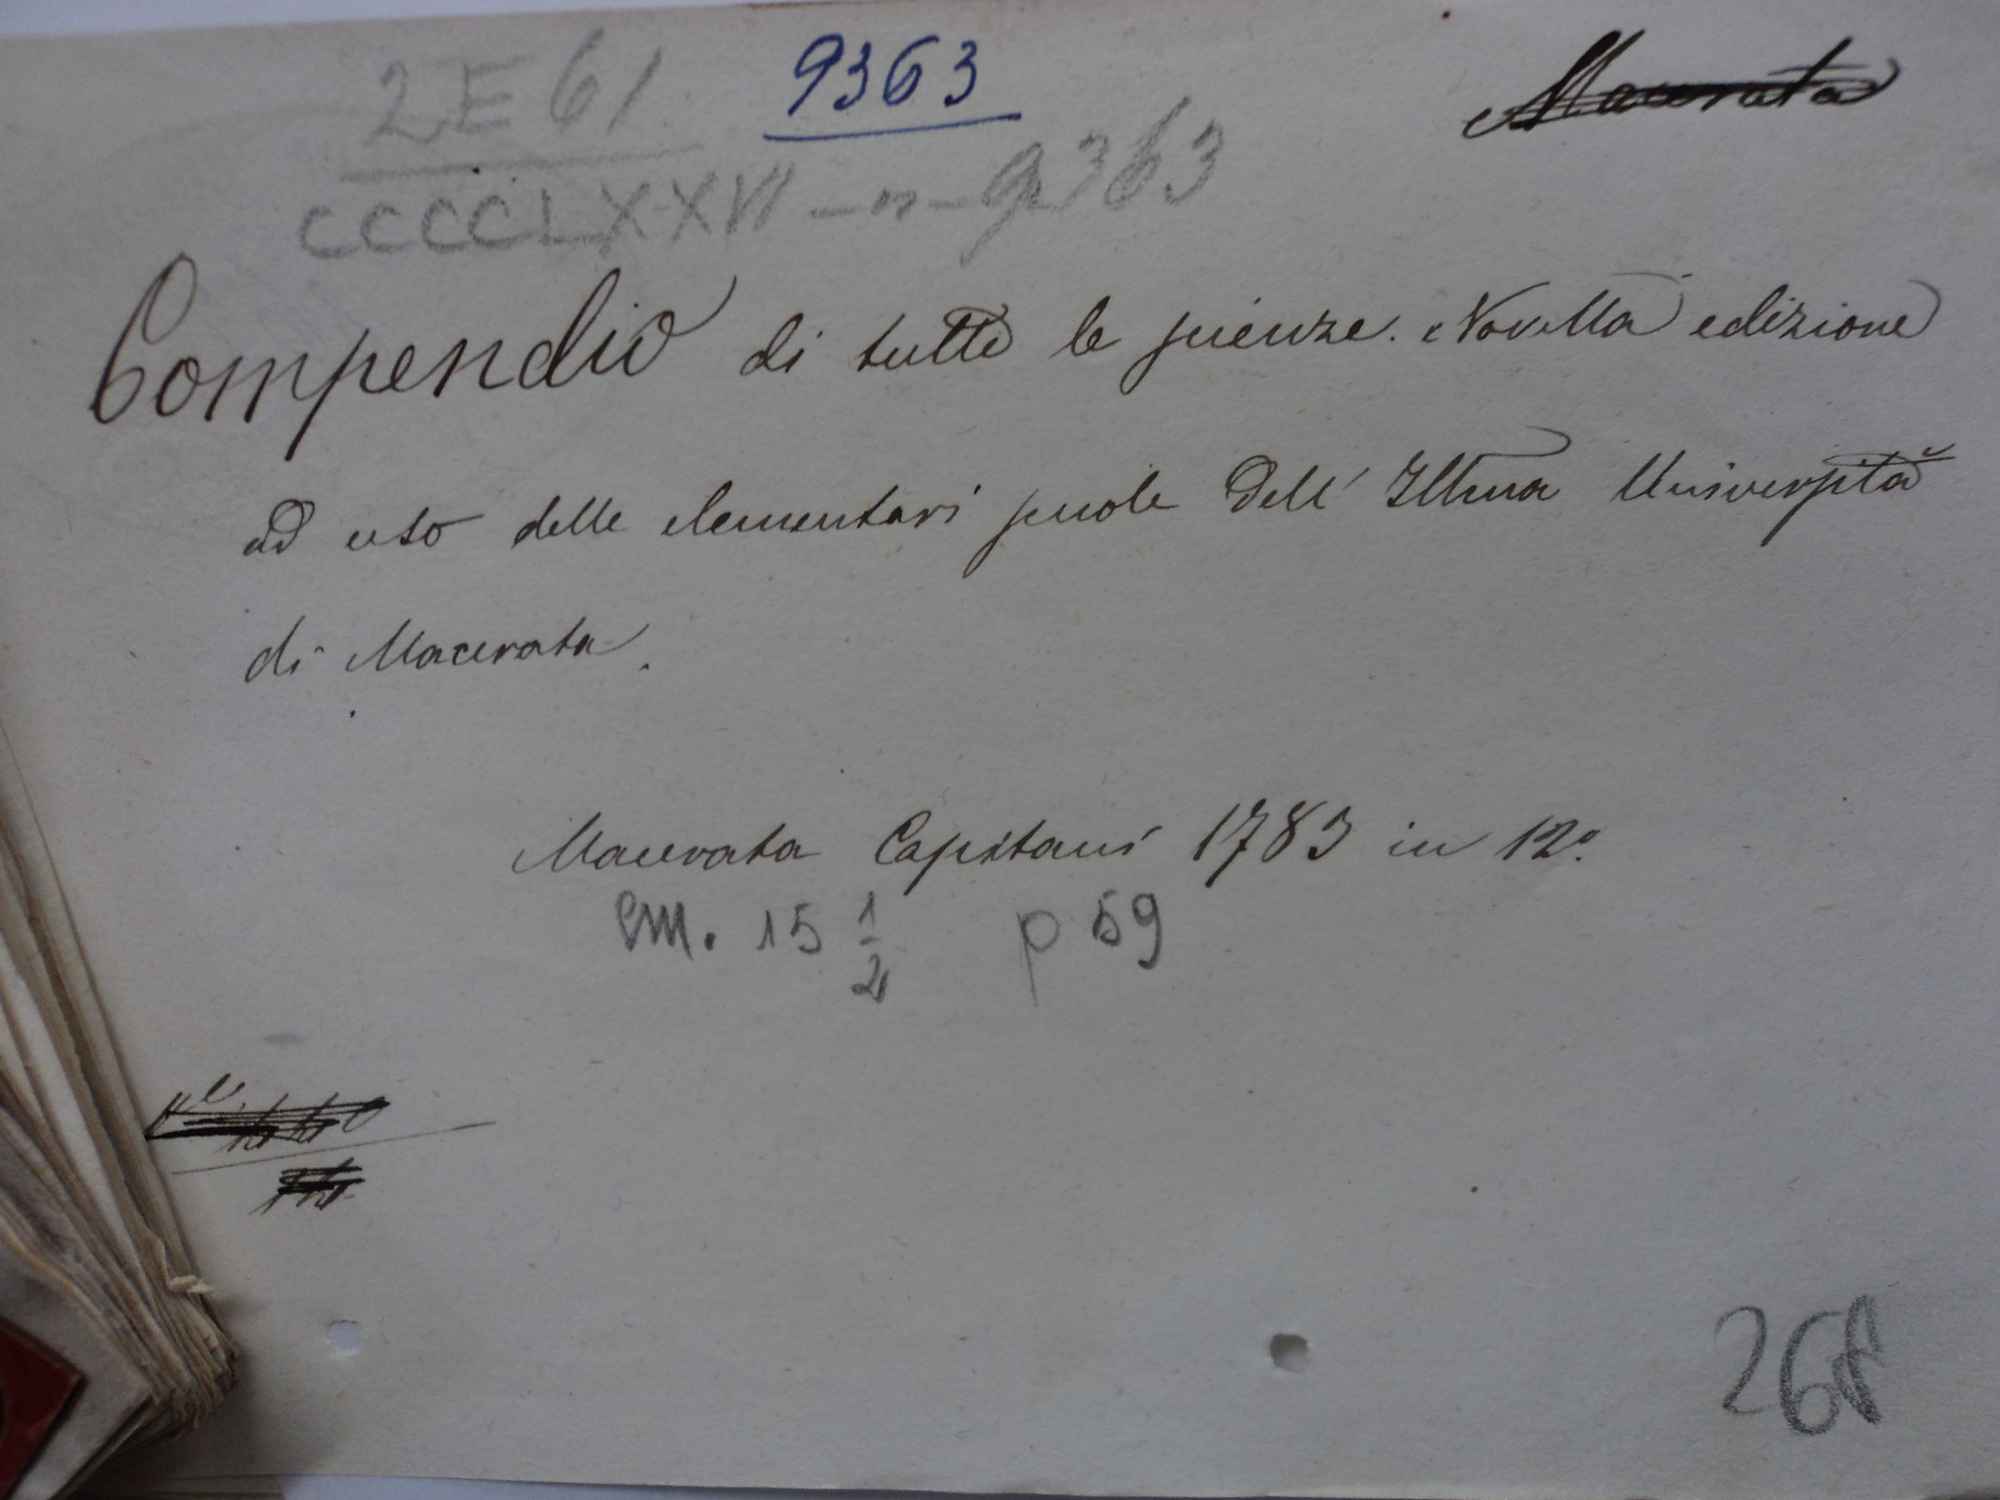 2E61 9363 Macerata
CCCCLXXVI - n - 9363
Compendio di tutte le scienze. Novella edizione
ad uso delle elementari scuole dell' Illma Università
di Macerata.
Macerata Capitani 1783 in 12º.
cm. 15 1/2 p 59
268